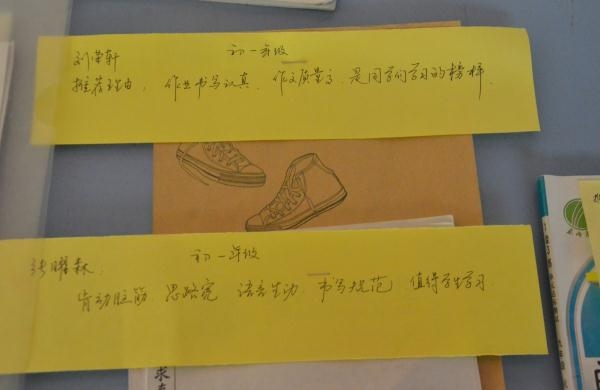 刘荣轩 初一年级
推荐理由: 作业书写认真、作文质量高、是同学们学习的榜样.
张曜森: 初一年级
肯动脑筋 思路宽 语言生动 书写规范 值得学生学习.
求